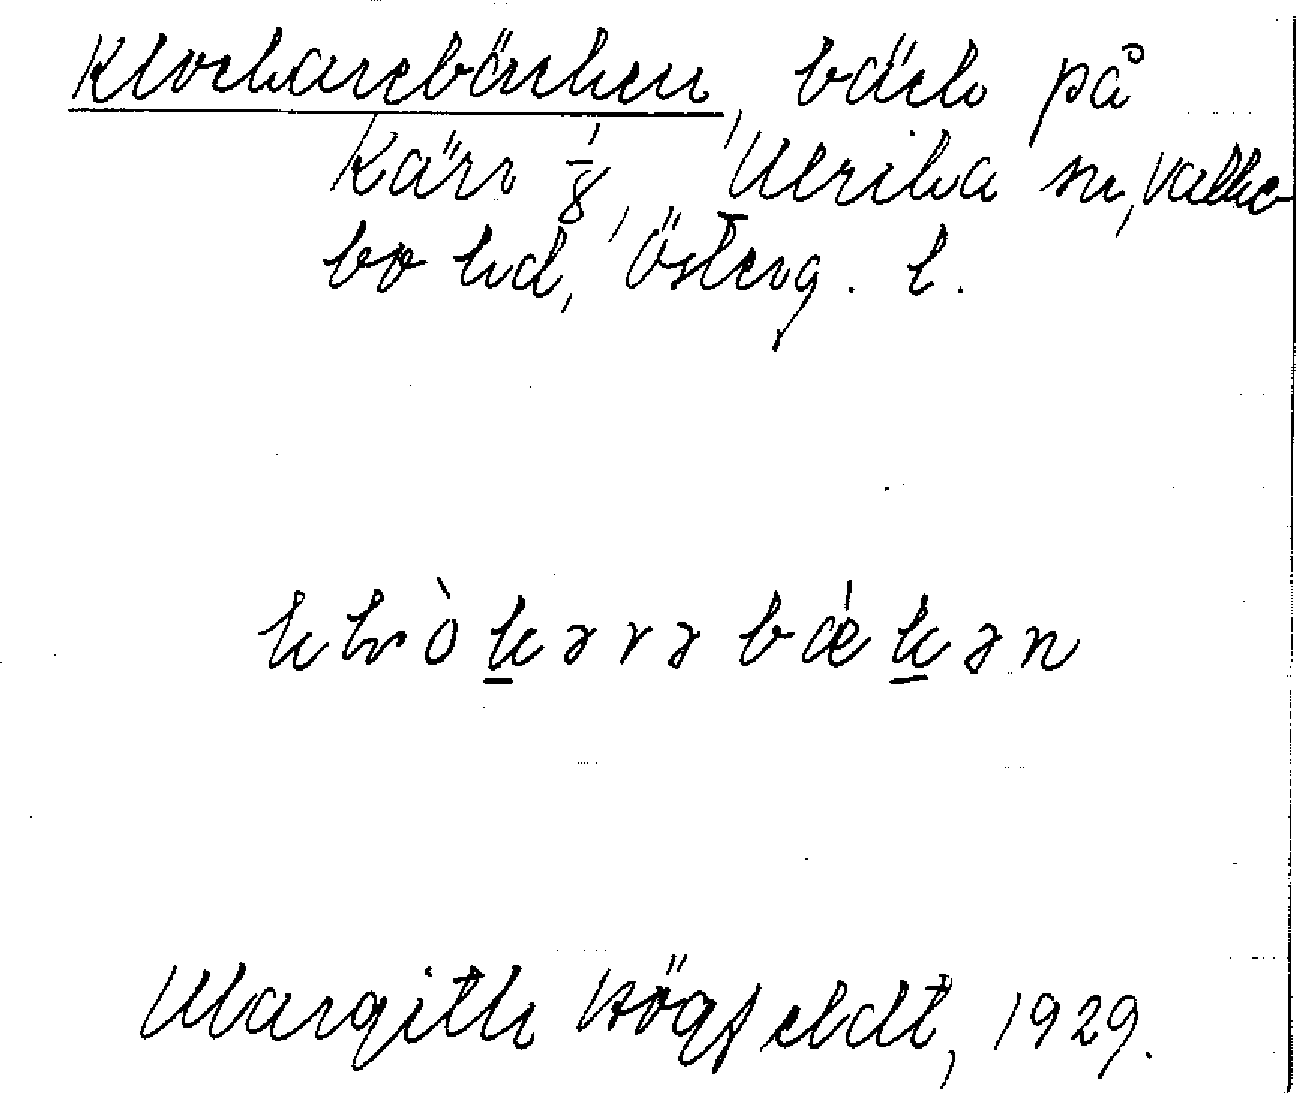 Klockarebäcken, bäck på
Kärr 1/8, Ulrika sn, Valke-
bo hd, Österg. l.
klò̱kərəbǽḵən
Margith Högfeldt, 1929.